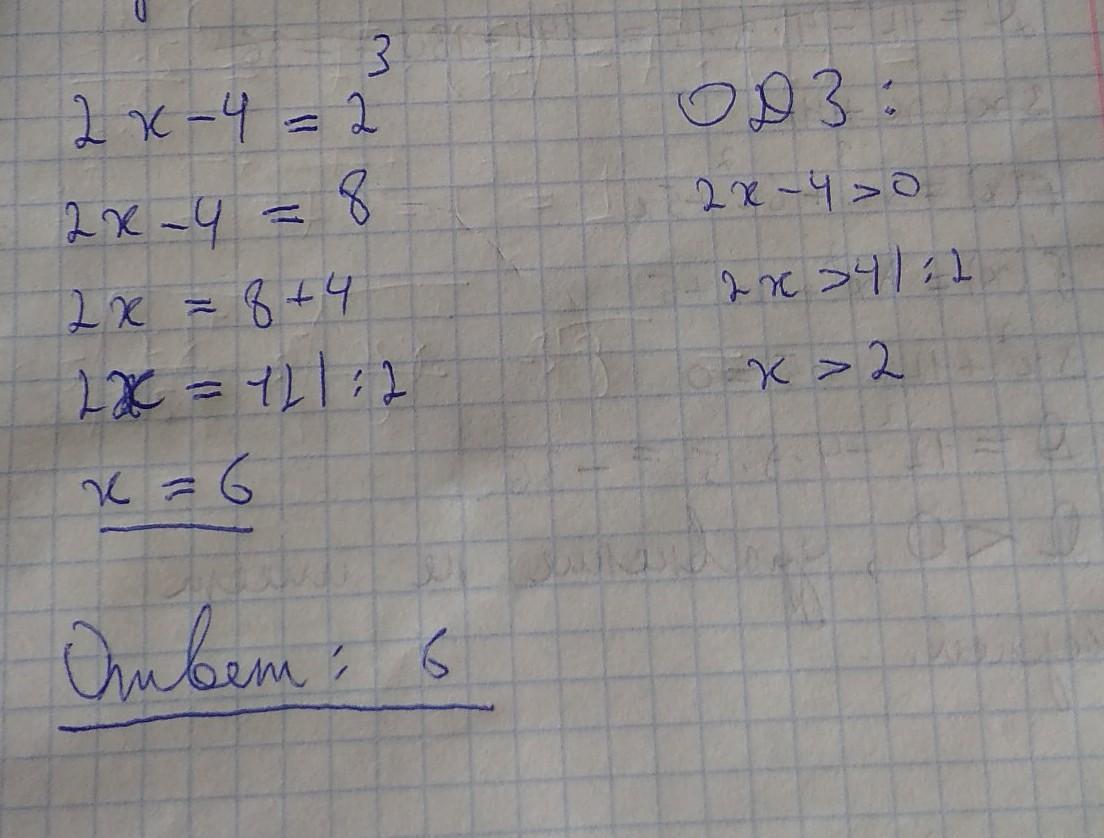 2x-4 = 2³
2x-4 = 8
2x = 8+4
2x = 12|:2
x = 6
Ответ: 6
ОДЗ:
2x-4>0
2x>4|:2
x > 2